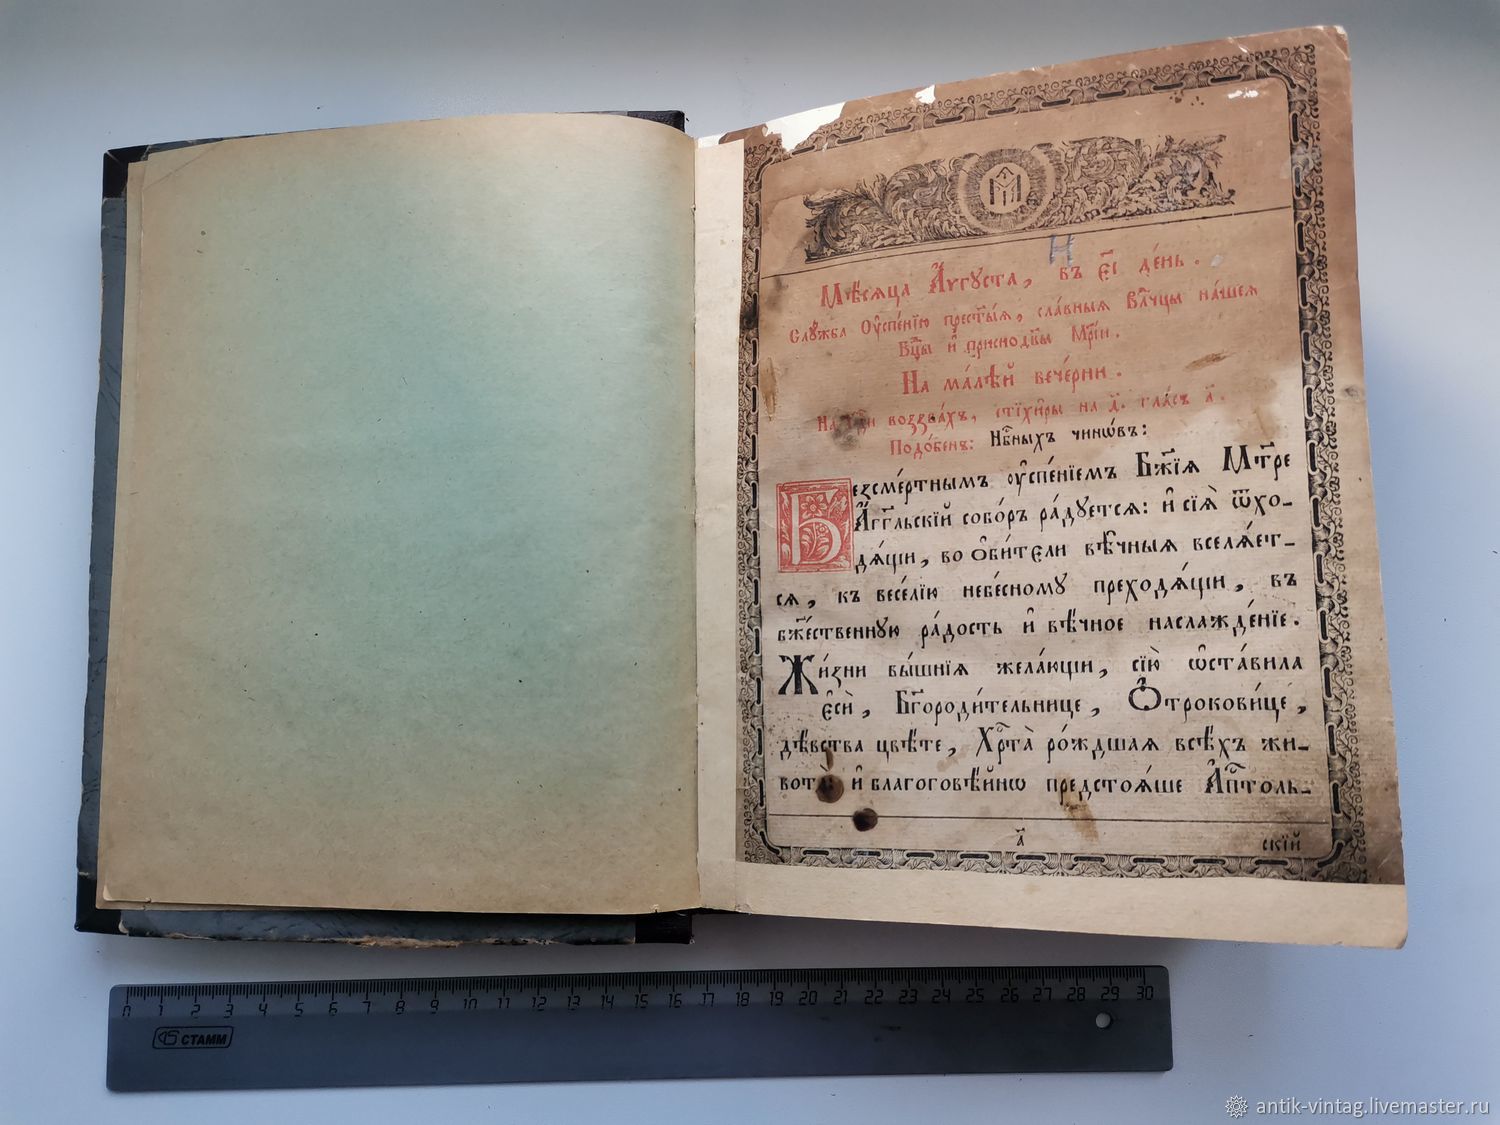 Мѣсяца А҆́ѵгꙋста, въ є҃і де́нь.
Слꙋ́жба Оу҆спе́нїю прест҃ы́ѧ, сла́вныѧ Влⷣчцы на́шеѧ
Бцⷣы и҆ приснодв҃ы Мр҃і́и.
На ма́лѣй вече́рни.
На гдⷭ҇и воззва́хъ, стїхи̑ры на д҃. гла́съ а҃.
Подо́бенъ: Нбⷭ҇ныхъ чинѡ́въ:
Безсме́ртнымъ оу҆спе́нїемъ Бж҃їѧ Мт҃ре
А҆́гг҃льскїй собо́ръ ра́дꙋетсѧ: и҆ сїѧ̀ ѿхо-
дѧ́щи, во ѻ҆би́тели вѣ́чныѧ вселѧ́ет-
сѧ, къ весе́лїю небе́сномꙋ преходѧ́щи, въ
бж҃е́ственнꙋю ра́дость и҆ вѣ́чное наслажде́нїе.
Жи́зни вы́шнїѧ жела́ющи, сїю̀ ѡ҆ста́вила
є҆сѝ, Бг҃ороди́тельнице, Ѻ҆трокови́це,
дѣ́вства цвѣ́те, Хрⷭ҇та̀ ро́ждшаѧ всѣ́хъ жи-
вота̀: и҆ благоговѣ́йнѡ предстоѧ́ше А҆пⷭ҇толь-
а҃ скїй
0 1 2 3 4 5 6 7 8 9 10 11 12 13 14 15 16 17 18 19 20 21 22 23 24 25 26 27 28 29 30
СТАММ
antik-vintag.livemaster.ru